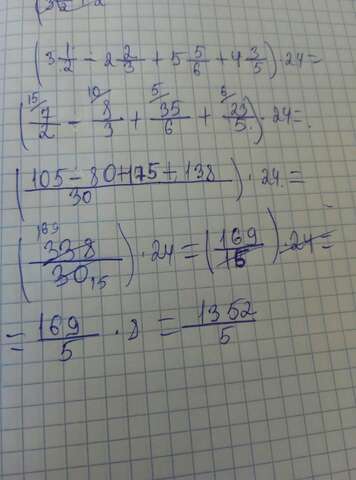 (3 1/2 - 2 2/3 + 5 5/6 + 4 3/5) · 24 =
15 10 5 6
(7/2 - 8/3 + 35/6 + 23/5) · 24 =
((105 - 80 + 175 + 138)/30) · 24 =
169
(338/30 15) · 24 = (169/15) · 24 =
= 169/5 · 8 = 1352/5